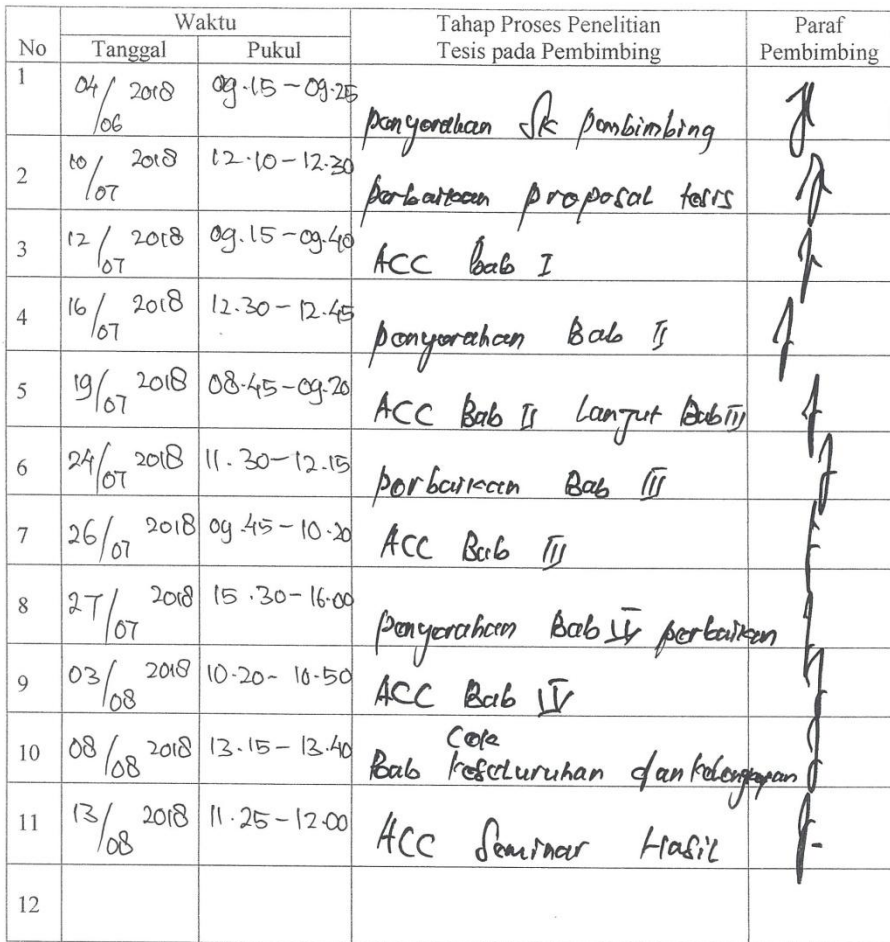 No Waktu Tahap Proses Penelitian Tesis pada Pembimbing Paraf Pembimbing
Tanggal Pukul
1 04/06 2018 09.15-09.25 penyerahan SK pembimbing
2 10/07 2018 12.10-12.30 perbaikan proposal tesis
3 12/07 2018 09.15-09.40 ACC bab I
4 16/07 2018 12.30-12.45 penyerahan Bab II
5 19/07 2018 08.45-09.20 ACC Bab II Lanjut Bab III
6 24/07 2018 11.30-12.15 perbaikan Bab III
7 26/07 2018 09.45-10.20 ACC Bab III
8 27/07 2018 15.30-16.00 penyerahan Bab IV perbaikan
9 03/08 2018 10.20-10.50 ACC Bab IV
10 08/08 2018 13.15-13.40 Bab keseluruhan dan kelengkapan
11 13/08 2018 11.25-12.00 ACC Seminar Hasil
12